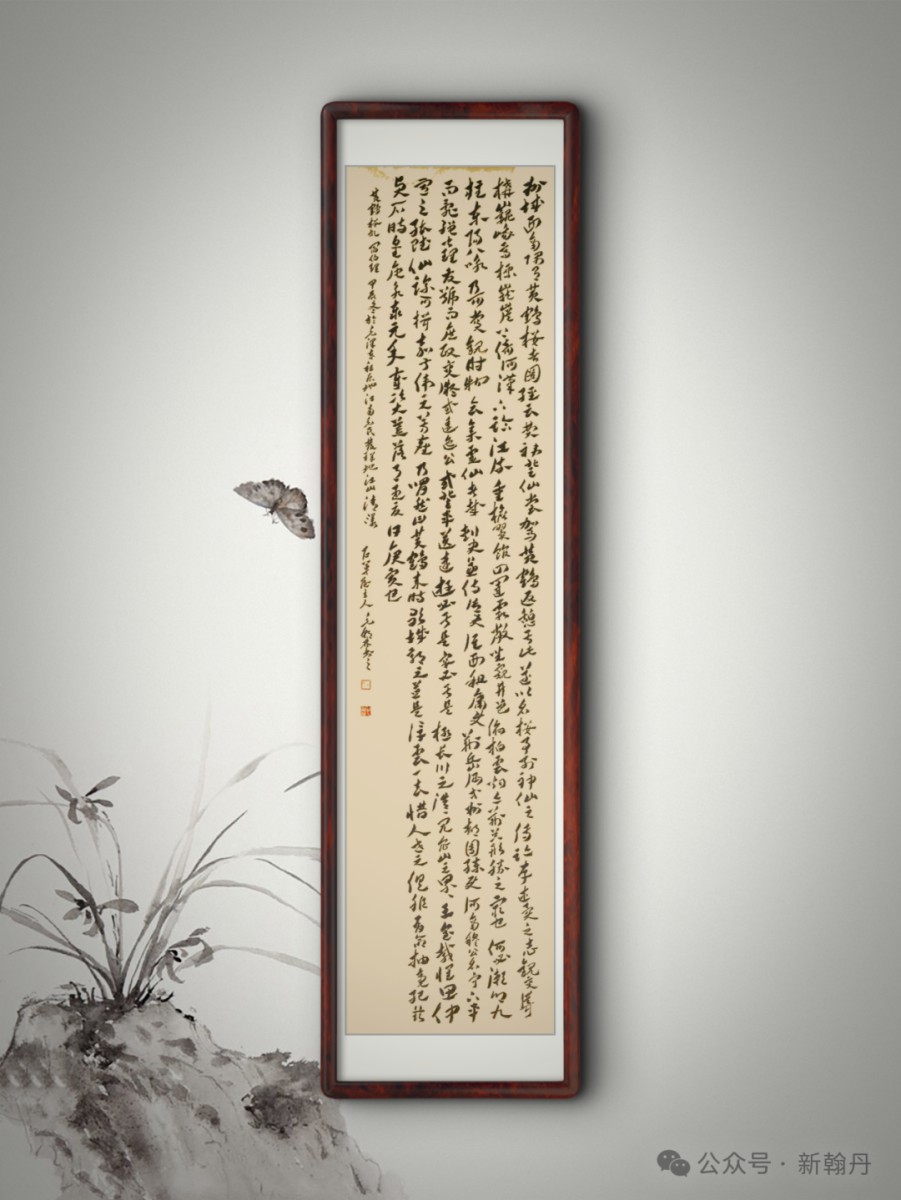 州城西南隅有黄鶴楼者图经云费祎登仙尝驾黄鶴返憩于此遂以名楼事列神仙之传迹存述异之志觀其聳
構巍峨高標巃嵸上倚河漢下临江流重檐翼馆四闼霞敞坐窥井邑俯拍雲烟亦荆吴形胜之最也何必濑鄉九
柱東陽八咏乃可赏觀时物会集靈仙者哉刺史兼侍御史淮西租庸使荆岳沔等州都團練使河南穆公名宁下車
而亂繩皆理发號而庶政其凝或逶迤退公或登車送远游必于是宴必于是極长川之浩浩见众山之累累王室載懷思仲
宣之能赋仙踪可揖嘉叔偉之芳塵乃喟然曰黄鶴来时歌城郭之並是浮雲一去惜人世之俱非有命抽毫纪兹
貞石時皇唐永泰元年歲次大荒落月孟夏日庚寅也
黄鶴楼记 阎伯理 甲辰冬於
主人
公众号·新翰丹